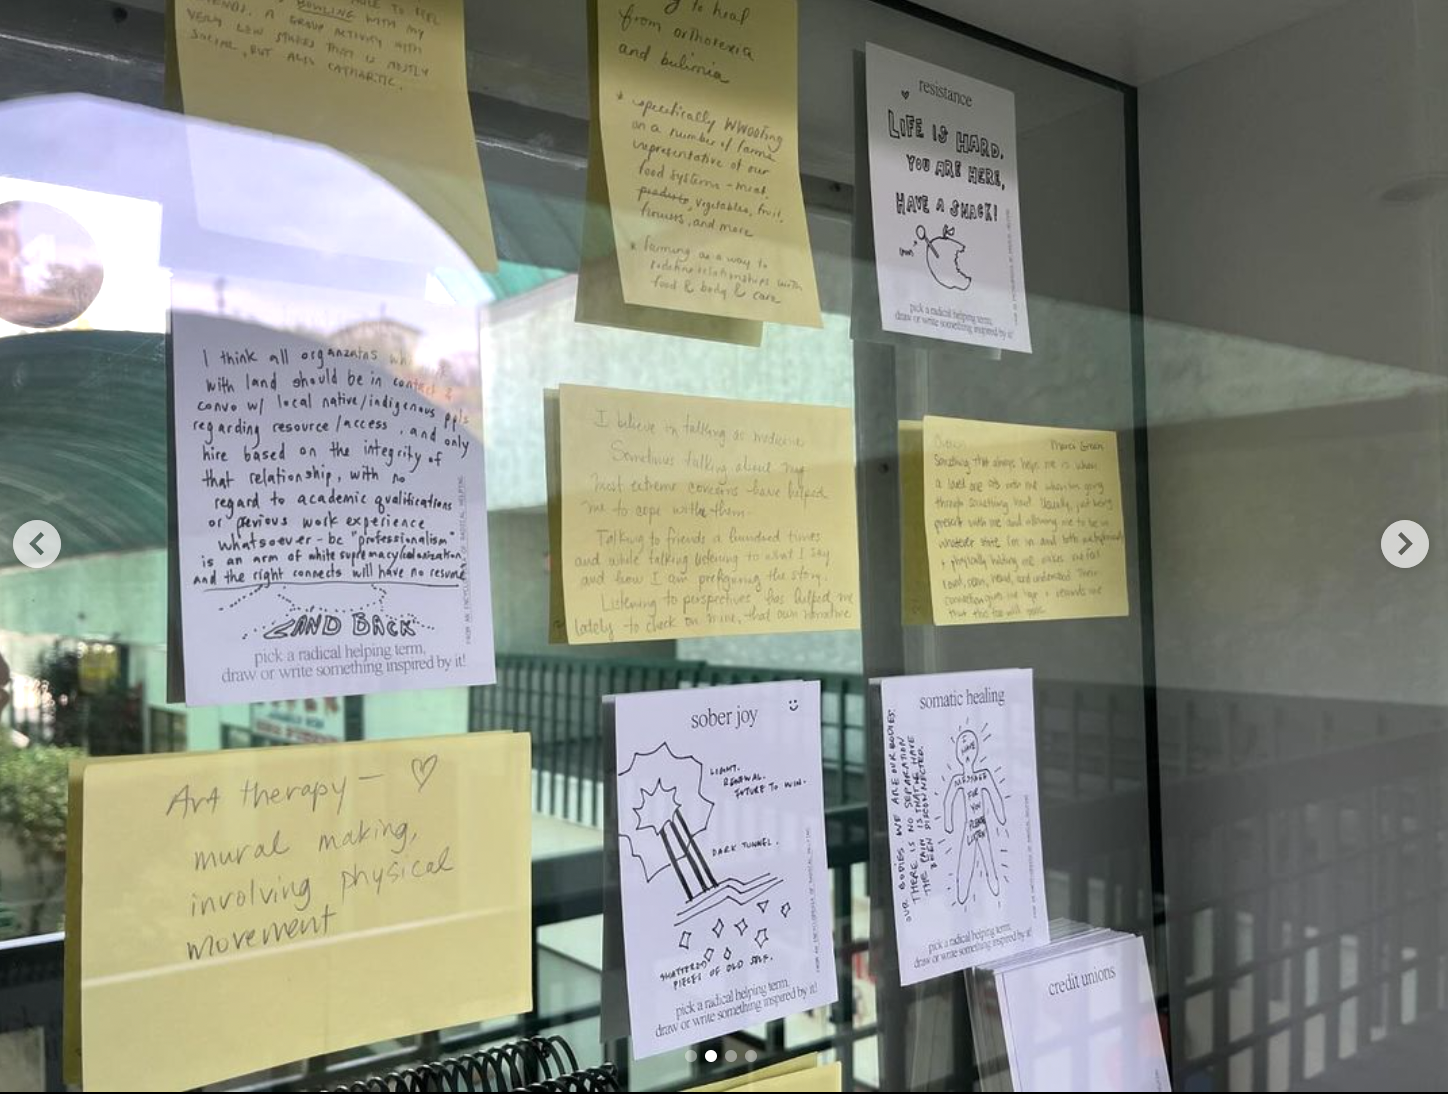 BOWLING WITH MY
A GROUP ACTIVITY WITH
VERY LOW STAKES THAT IS MOSTLY
SOCIAL, BUT ALSO CATHARTIC.
to heal
from orthorexia
and bulimia
* specifically WWOOFing
on a number of farms
representative of our
food systems - meat
products, vegetables, fruit,
flowers, and more
* farming as a way to
redefine relationships with
food & body & care
resistance
LIFE IS HARD.
YOU ARE HERE,
HAVE A SNACK!
pick a radical helping term,
draw or write something inspired by it!
I think all
with land should be in contact &
convo w/ local native/indigenous ppls
regarding resource/access, and only
hire based on the integrity of
that relationship, with no
regard to academic qualifications
or previous work experience
whatsoever - bc "professionalism"
is an arm of white supremacy/colonization
and the right connects will have no resume
LAND BACK
FROM AN ENCYCLOPEDIA OF RADICAL HELPING
pick a radical helping term,
draw or write something inspired by it!
I believe in talking as medicine
Sometimes talking about my
most extreme concerns have helped
me to cope with them.
Talking to friends a hundred times
and while talking listening to what I say
and how I am prefiguring the story.
Listening to perspectives has helped me
lately to check on mine, that own narrative
Something that always helps me is when
a loved one sits with me when im going
through something hard. Usually, just being
present with me and allowing me to be in
whatever state I'm in and both
+ physically holding me makes me feel
loved, seen, heard, and understood. Their
that this too will pass.
Art therapy - ♡
mural making,
involving physical
movement
sober joy
LIGHT.
RENEWAL.
FUTURE TO WIN.
DARK TUNNEL.
SHATTERED
PIECES OF OLD SELF.
FROM AN ENCYCLOPEDIA OF RADICAL HELPING
pick a radical helping term,
draw or write something inspired by it!
somatic healing
OUR BODIES WE ARE OUR BODIES.
THERE IS NO SEPARATION
THE PAIN IS THAT WE HAVE
BEEN DISCONNECTED.
I
HAVE
A
MESSAGE
FOR
YOU
PLEASE
LISTEN
pick a radical helping term,
draw or write something inspired by it!
credit unions